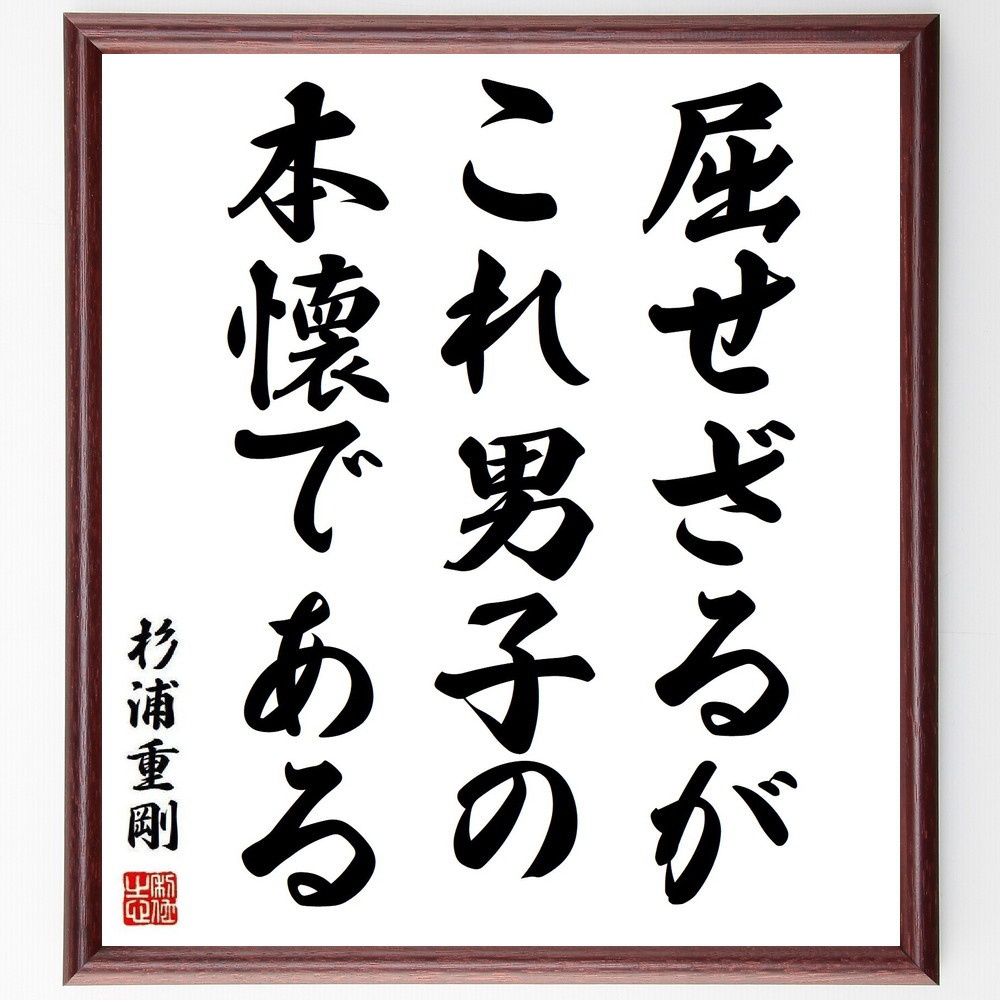 屈せざるが
これ男子の
本懐である
杉浦重剛